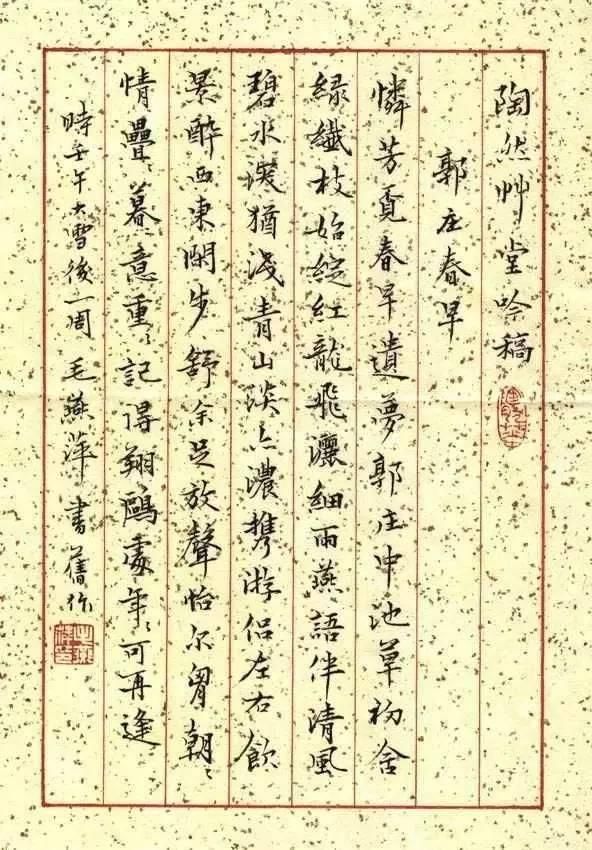 陶然艸堂吟稿
郭庄春早
憐芳覓春早遺夢郭庄中池草初含
緑纖枝始綻紅龍飛灑細雨燕語伴清風
碧水淺猶浅青山淡亦濃携游侣左右飲
景醉西東閑步舒余足放聲怡尔胷朝〻
情疊〻暮〻意重〻記得翔鷗處年〻可再逢
時壬午大雪後一周毛燕萍書舊作